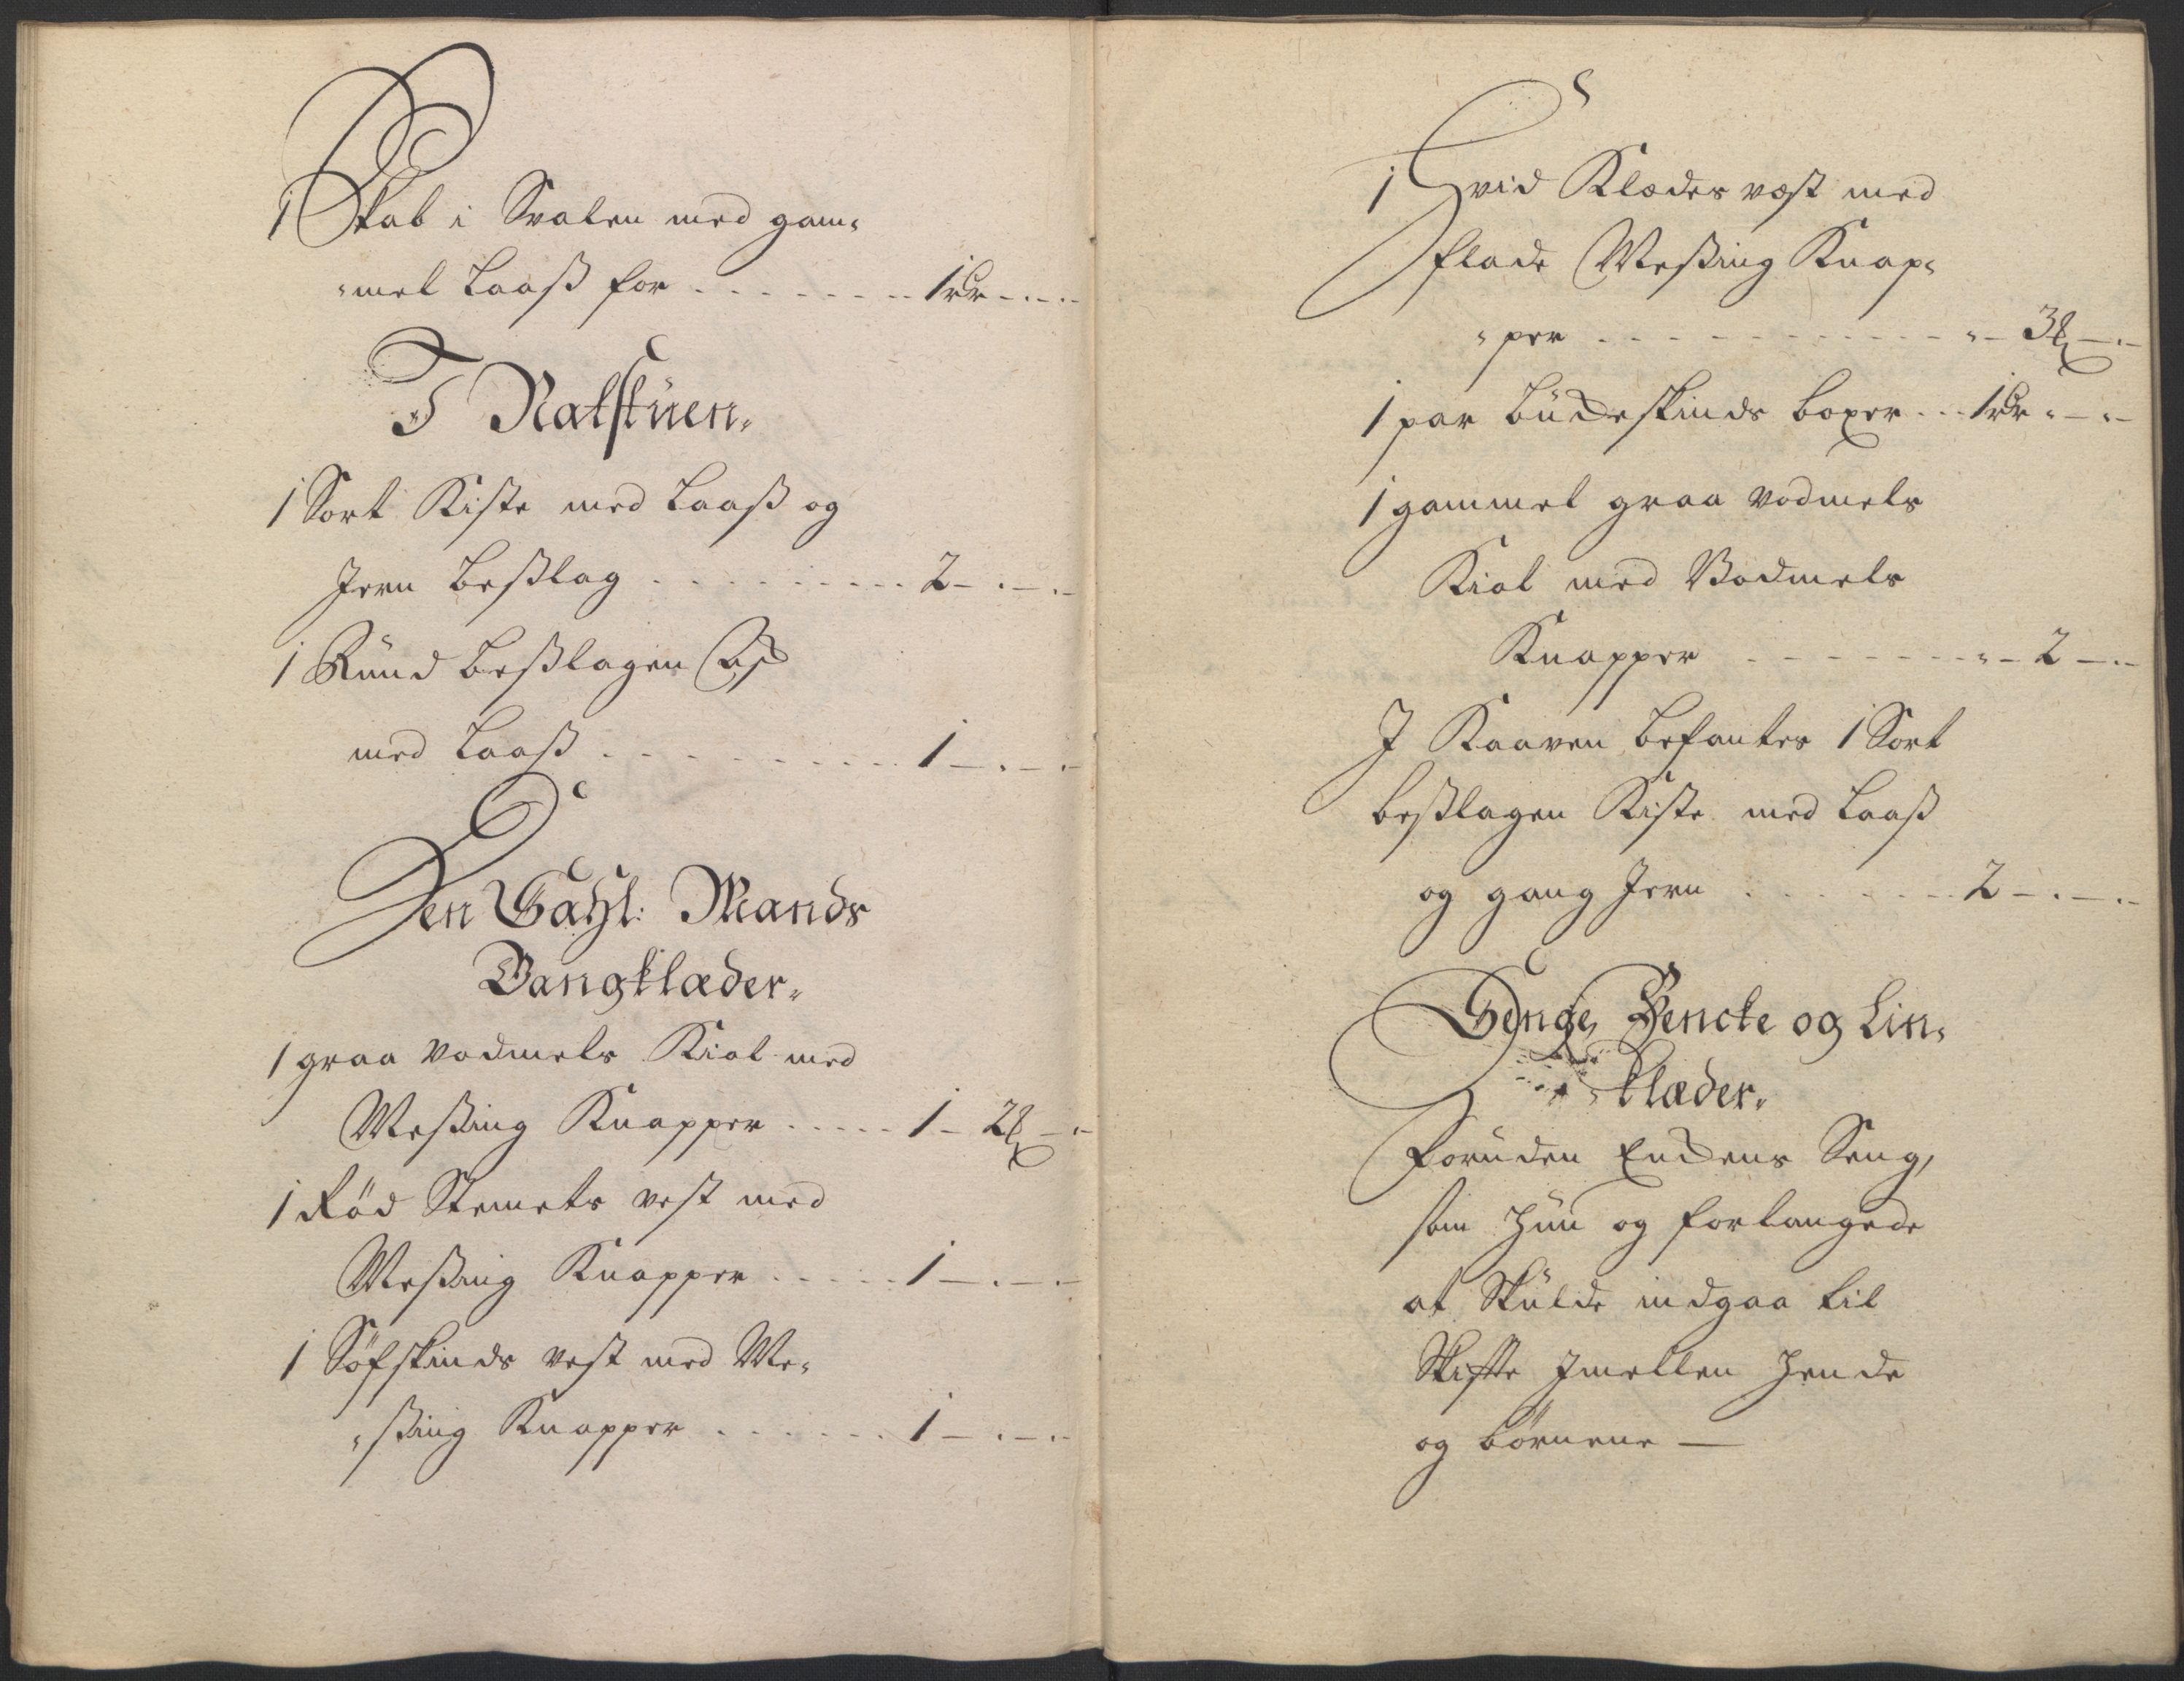 1 Skab i Svalen med gam¬
¬mel Laaß for . . . . . . . . 1 rdr - . - . -
I Natstuen.
1 Sort Kiste med Laaß og
Jern Beßlag . . . . . . . . . 2 - . - . -
1 Rund beßlagen
med Laaß . . . . . . . . . 1 - . - . -
Den Sahl: Mands
Gangklæder.
1 graa Vadmels Kiol med
Meßing Knapper . . . . . 1 - 2 ℔ - . -
1 Rød Stemets vest med
Meßing Knapper . . . . . 1 - . - . -
1 Søfskinds vest med Me¬
¬ßing Knapper . . . . . . 1 - . - . -
1 Hvid Klædes vest med
flade Meßing Knap¬
¬per . . . . . . . . . . . . - 3 ℔ - . -
1 par buckeskinds boxer . . . 1 rdr . - . -
1 gammel graa Vadmels
Kiol med Vadmels
Knapper . . . . . . . . . - 2 - . -
J Kaaven befantes 1 Sort
beßlagen Kiste med Laaß
og gang Jern . . . . . . . 2 - . - . -
Senge, Bencke og Lin¬
¬klæder.
Foruden Enckens Seng,
som hun og forlangede
at Skulde indgaa til
Skifte Jmellen hende
og børnene —